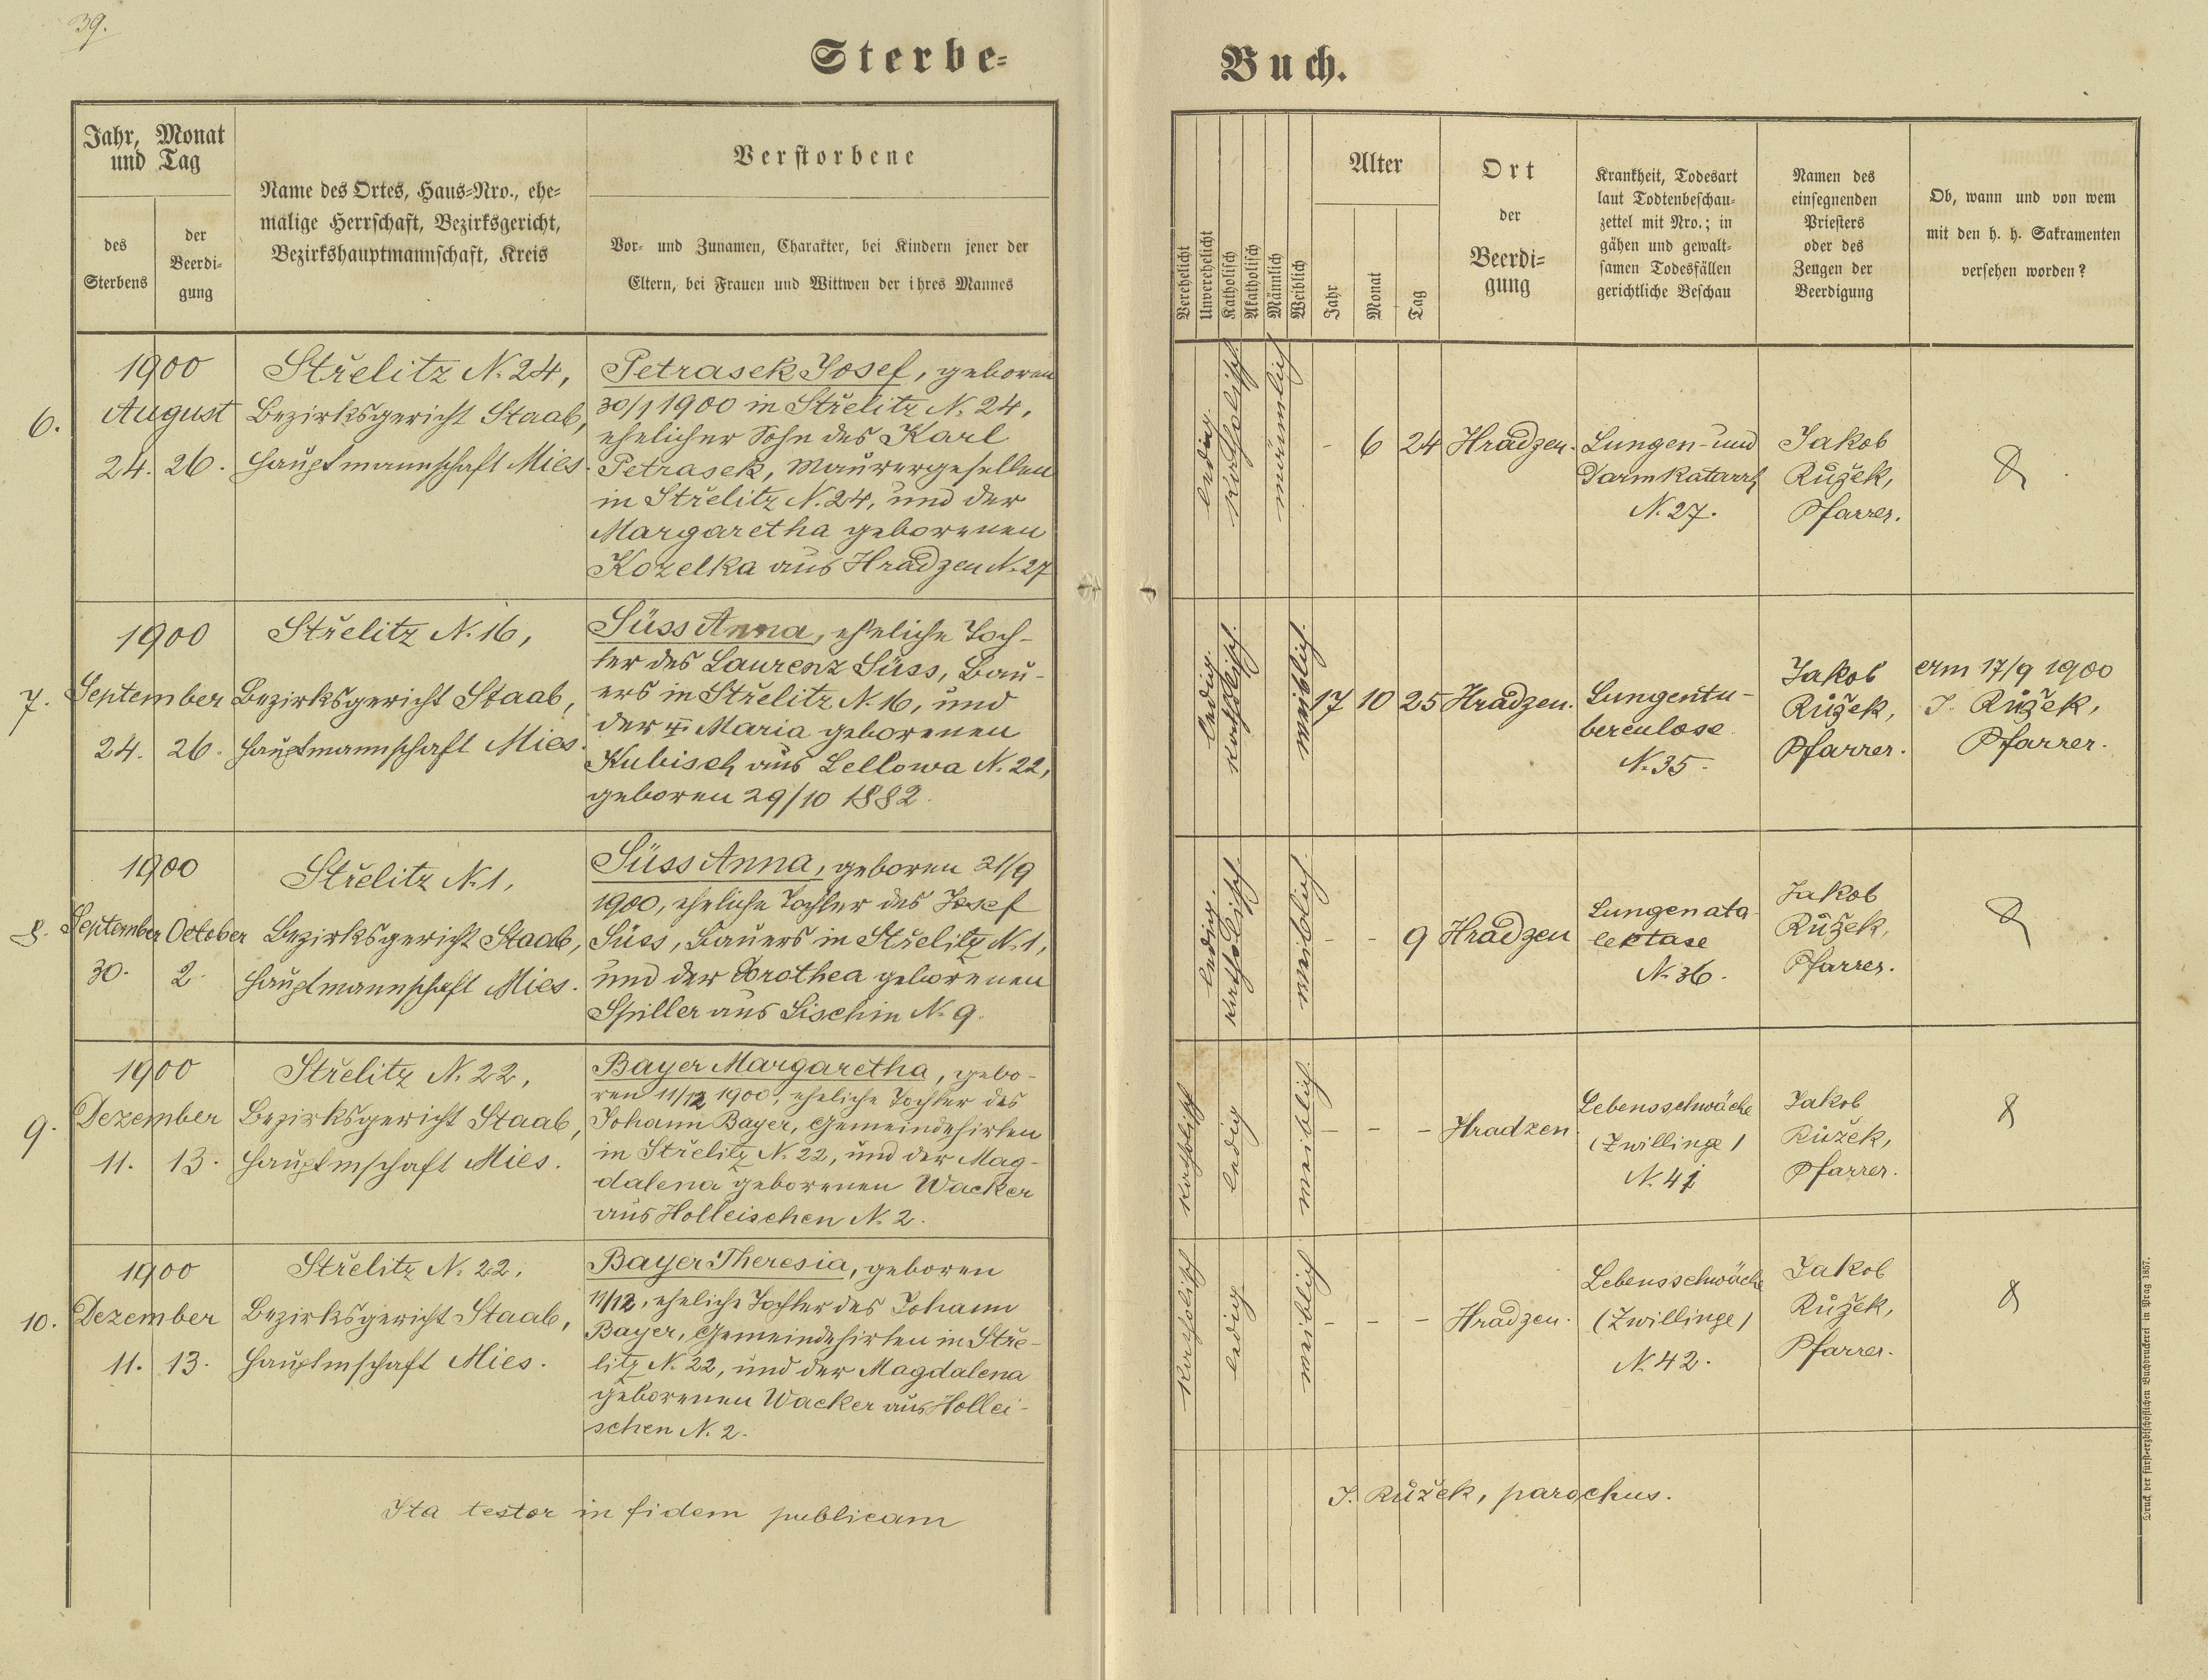 39.
Sterbe-
Buch.
Jahr, Monat
und Tag
des
Sterbens
der
Beerdi-
gung
Name des Ortes, Haus-Nro., ehe-
malige Herrschaft, Bezirksgericht,
Bezirkshauptmannschaft, Kreis
Verstorbene
Vor- und Zunamen, Charakter, bei Kindern jener der
Eltern, bei Frauen und Wittwen der ihres Mannes
Verehelicht
Unverehelicht
Katholisch
Akatholisch
Männlich
Weiblich
Alter
Jahr
Monat
Tag
Ort
der
Beerdi-
gung
Krankheit, Todesart
laut Todtenbeschau-
zettel mit Nro.; in
gähen und gewalt-
samen Todesfällen
gerichtliche Beschau
Namen des
einsegnenden
Priesters
oder des
Zeugen der
Beerdigung
Ob, wann und von wem
mit den h. h. Sakramenten
versehen worden?
6.
1900
August
24. 26.
Střelitz N. 24,
Bezirksgericht Staab,
Hauptmannschaft Mies.
Petrasek Josef, geboren
30/1 1900 in Střelitz N. 24,
ehelicher Sohn des Karl
Petrasek, Maurergesellen
in Střelitz N. 24, und der
Margaretha geborenen
Kozelka aus Hradzen N. 27
ledig.
katholisch
männlich
- 6 24
Hradzen.
Lungen- und
Darmkatarrh
N. 27.
Jakob
Růžek,
Pfarrer.
7.
1900
September
24. 26.
Střelitz N. 16,
Bezirksgericht Staab,
Hauptmannschaft Mies.
Süss Anna, eheliche Toch-
ter des Laurenz Süss, Bau-
ers in Střelitz N. 16, und
der Maria geborenen
Kubisch aus Lellowa N. 22,
geboren 29/10 1882.
ledig.
katholisch.
weiblich.
17 10 25
Hradzen.
Lungentu-
berculose.
N. 35.
Jakob
Růžek,
Pfarrer.
am 17/9 1900
J. Růžek,
Pfarrer.
8.
1900
September October
30. 2.
Střelitz N. 1,
Bezirksgericht Staab,
Hauptmannschaft Mies.
Süss Anna, geboren 21/9
1900, eheliche Tochter des Josef
Süss, Bauers in Střelitz N. 1,
und der Dorothea geborenen
Spiller aus Lischin N. 9.
ledig.
katholisch.
weiblich.
- - 9
Hradzen
Lungenata-
lektase
N. 36.
Jakob
Růžek,
Pfarrer.
9.
1900
Dezember
11. 13.
Střelitz N. 22,
Bezirksgericht Staab,
Hauptmschaft Mies.
Bayer Margaretha, gebo-
ren 11/12 1900, eheliche Tochter des
Johann Bayer, Gemeindehirten
in Střelitz N. 22, und der Mag-
dalena geborenen Wacker
aus Holleischen N. 2.
katholisch
ledig
weiblich.
- - -
Hradzen.
Lebensschwäche
(Zwillinge)
N. 41
Jakob
Růžek,
Pfarrer.
10.
1900
Dezember
11. 13.
Střelitz N. 22.
Bezirksgericht Staab,
Hauptmschaft Mies.
Bayer Theresia, geboren
11/12, eheliche Tochter des Johann
Bayer, Gemeindehirten in Stře-
litz N. 22, und der Magdalena
geborenen Wacker aus Hollei-
schen N. 2.
katholisch
ledig
weiblich
- - -
Hradzen.
Lebensschwäche
(Zwillinge)
N. 42.
Jakob
Růžek,
Pfarrer.
Ita testor in fidem publicam
J. Růžek, parochus.
Druck der fürst-erzbischöflichen Buchdruckerei in Prag 1857.